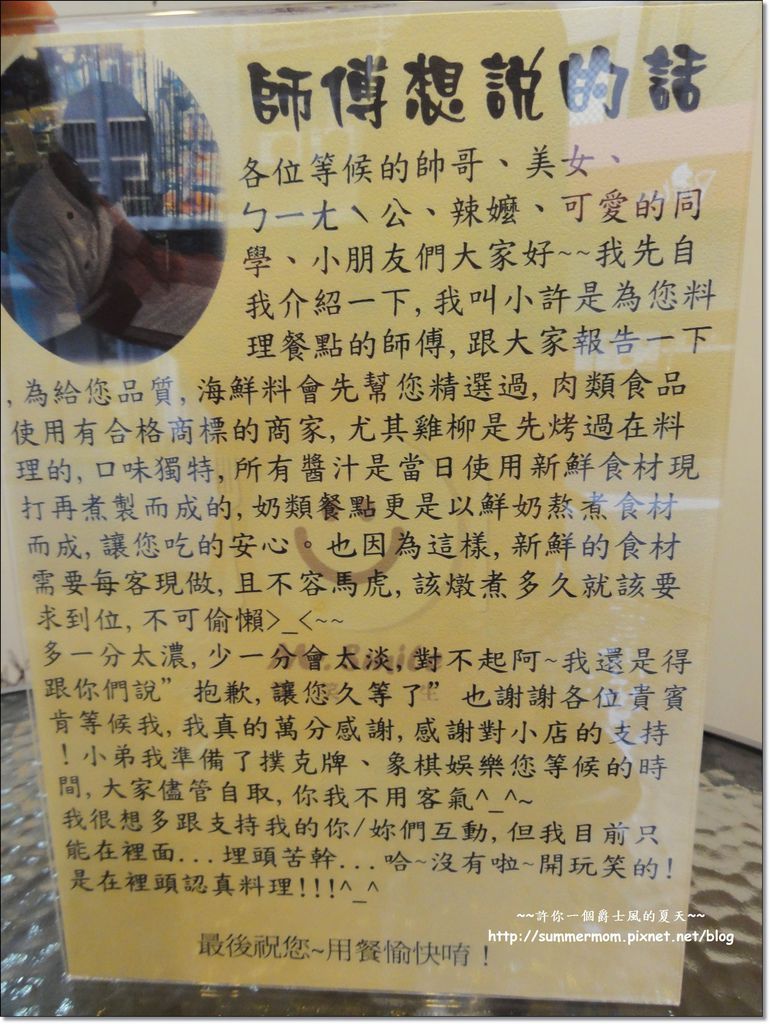 師傅想說的話
各位等候的帥哥、美女、
ㄅㄧㄤˋ公、辣嬤、可愛的同
學、小朋友們大家好~~我先自
我介紹一下,我叫小許是為您料
理餐點的師傅,跟大家報告一下
,為給您品質,海鮮料會先幫您精選過,肉類食品
使用有合格商標的商家,尤其雞柳是先烤過在料
理的,口味獨特,所有醬汁是當日使用新鮮食材現
打再煮製而成的,奶類餐點更是以鮮奶熬煮食材
而成,讓您吃的安心。也因為這樣,新鮮的食材
需要每客現做,且不容馬虎,該燉煮多久就該要
求到位,不可偷懶>_<~~
多一分太濃,少一分會太淡,對不起阿~我還是得
跟你們說”抱歉,讓您久等了”也謝謝各位貴賓
肯等候我,我真的萬分感謝,感謝對小店的支持
!小弟我準備了撲克牌、象棋娛樂您等候的時
間,大家儘管自取,你我不用客氣^_^~
我很想多跟支持我的你/妳們互動,但我目前只
能在裡面...埋頭苦幹...哈~沒有啦~開玩笑的!
是在裡頭認真料理!!!^_^
最後祝您~用餐愉快唷!
~~許你一個爵士風的夏天~~
http://summermom.pixnet.net/blog